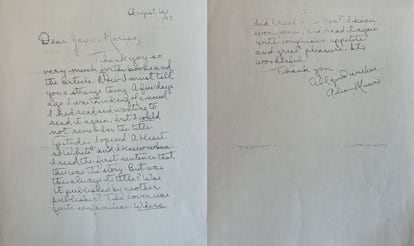 August 16/
Dear Javier Marías,
Thank you so
very much for the books and
the article. Now I must tell
you a strange thing. A few days
ago I was thinking of a novel
I had read and wanting to
read it again, but I could
not remember the title.
Yesterday I opened A Heart
so White and I knew when
I read the first sentence that
this was the story. But was
this always its title? Was
it published by another
publisher? The cover was
quite unfamiliar. Where
did I read it before? I knew
everything and read it again
with compulsive appetite
and great pleasure. It is
wonderful.
Thank you
Alice Munro